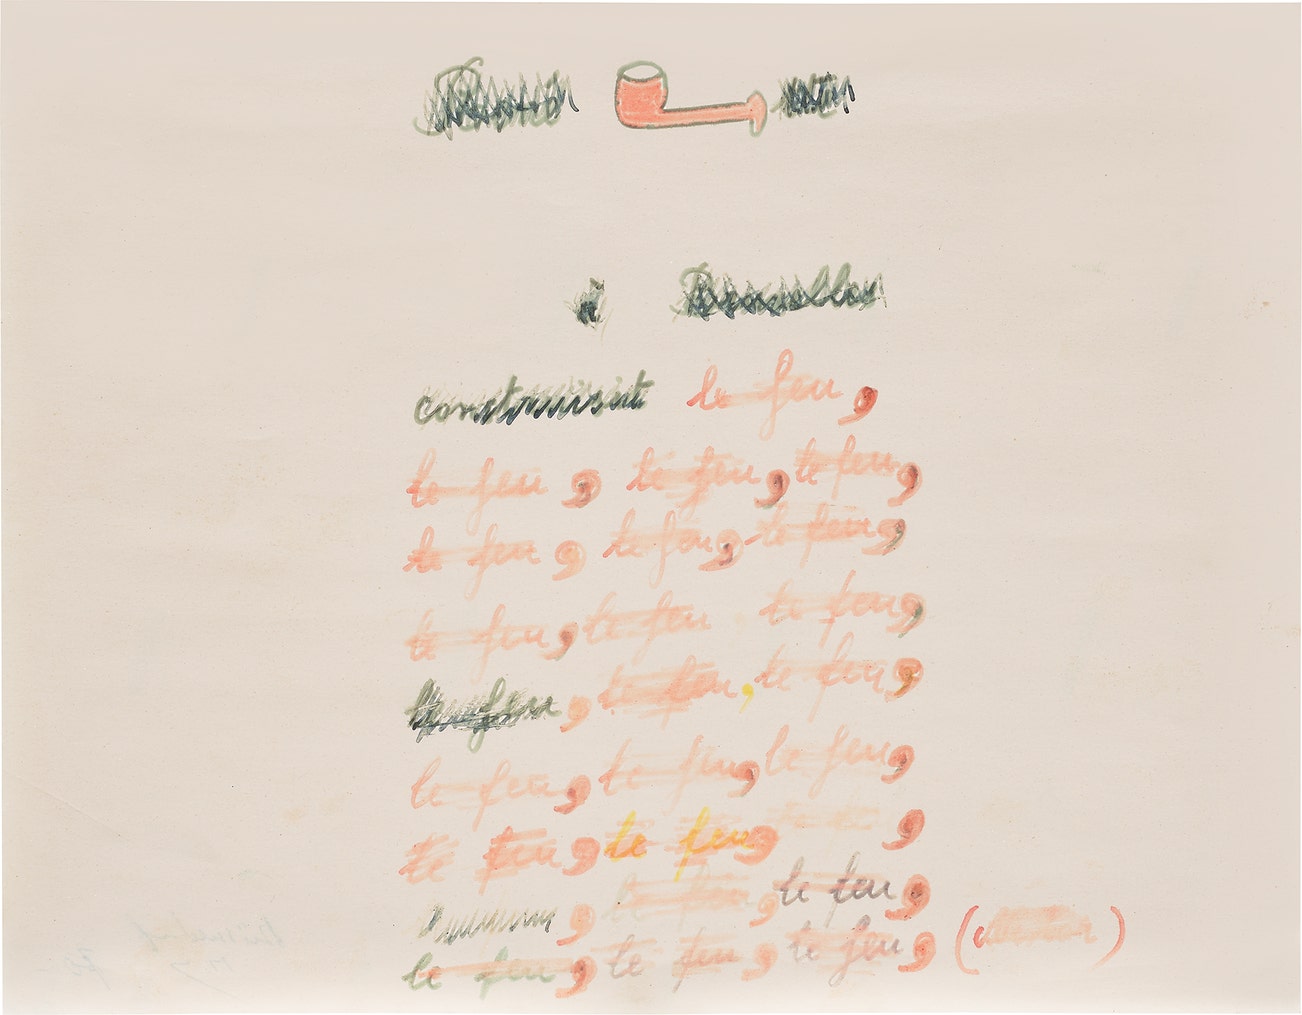 à Bruxelles
construisit le feu,
le feu, le feu, le feu,
le feu, le feu, le feu,
le feu, le feu le feu,
le feu, le feu, le feu,
le feu, le feu, le feu,
le feu, le feu, ,
, le feu, le feu,
le feu, le feu, le feu, ( )